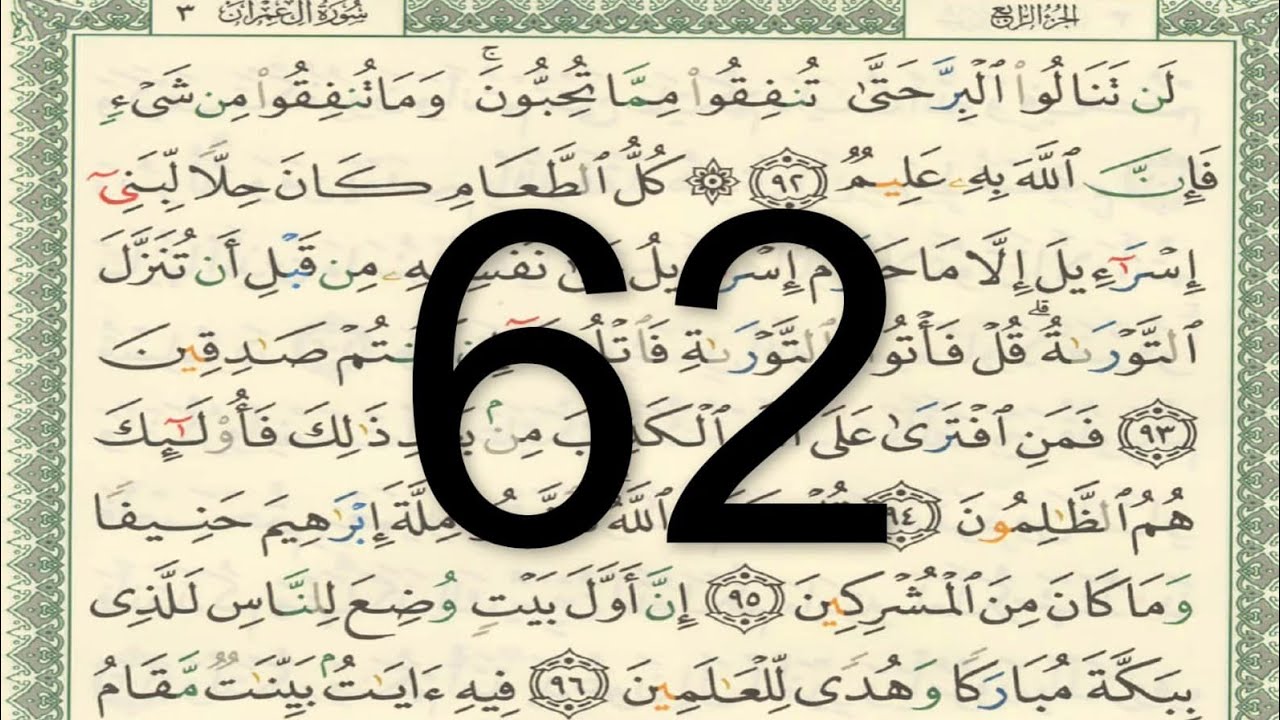 الجزء الرابع
سورة آل عمران ٣
لَن تَنَالُوا۟ ٱلْبِرَّ حَتَّىٰ تُنفِقُوا۟ مِمَّا تُحِبُّونَ ۚ وَمَا تُنفِقُوا۟ مِن شَىْءٍ
فَإِنَّ ٱللَّهَ بِهِۦ عَلِيمٌ ٩٢ ۞ كُلُّ ٱلطَّعَامِ كَانَ حِلًّا لِّبَنِىٓ
إِسْرَٰٓءِيلَ إِلَّا مَا حَرَّمَ إِسْرَٰٓءِيلُ نَفْسِهِۦ مِن قَبْلِ أَن تُنَزَّلَ
ٱلتَّوْرَىٰةُ ۗ قُلْ فَأْتُوا۟ بِٱلتَّوْرَىٰةِ فَٱتْلُوهَآ إِن كُنتُمْ صَٰدِقِينَ
٩٣ فَمَنِ ٱفْتَرَىٰ عَلَى ٱلْكَذِبَ مِنۢ بَعْدِ ذَٰلِكَ فَأُو۟لَٰٓئِكَ
هُمُ ٱلظَّٰلِمُونَ ٩٤ ٱللَّهُ مِلَّةَ إِبْرَٰهِيمَ حَنِيفًا
وَمَا كَانَ مِنَ ٱلْمُشْرِكِينَ ٩٥ إِنَّ أَوَّلَ بَيْتٍ وُضِعَ لِلنَّاسِ لَلَّذِى
بِبَكَّةَ مُبَارَكًا وَهُدًى لِّلْعَٰلَمِينَ ٩٦ فِيهِ ءَايَٰتٌۢ بَيِّنَٰتٌ مَّقَامُ
62